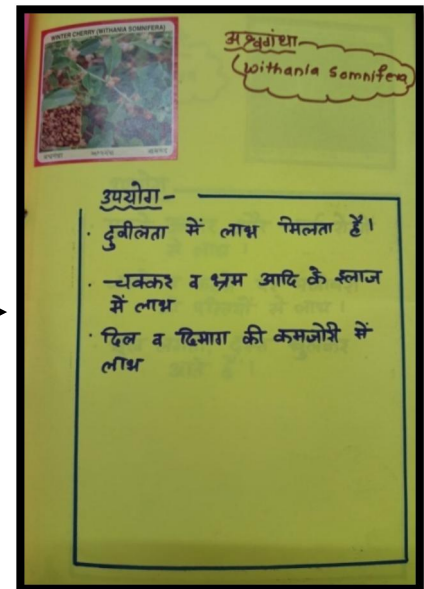 WINTER CHERRY (WITHANIA SOMNIFERA)
अश्वगंधा
(Withania Somnifera)
उपयोग -
• दुर्बलता में लाभ मिलता है।
• चक्कर व भ्रम आदि के इलाज
में लाभ
• दिल व दिमाग की कमजोरी में
लाभ